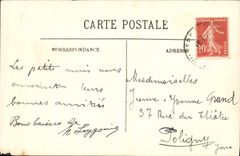 CARTE POSTALE
CORRESPONDANCE
ADRESSE
Les petits amis vous
envoient leurs
bonnes amitiés
Bons baisers de
Mesdemoiselles
Jeanne & Yvonne Grand
37 Rue du Théâtre
Poligny
Jura
10